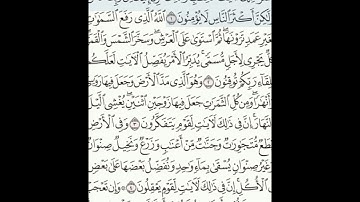 وَلَٰكِنَّ أَكْثَرَ ٱلنَّاسِ لَا يُؤْمِنُونَ ۝ ٱللَّهُ ٱلَّذِى رَفَعَ ٱلسَّمَٰوَٰتِ
بِغَيْرِ عَمَدٍ تَرَوْنَهَا ۖ ثُمَّ ٱسْتَوَىٰ عَلَى ٱلْعَرْشِ ۖ وَسَخَّرَ ٱلشَّمْسَ وَٱلْقَمَرَ
كُلٌّ يَجْرِى لِأَجَلٍ مُّسَمًّى ۚ يُدَبِّرُ ٱلْأَمْرَ يُفَصِّلُ ٱلْءَايَٰتِ لَعَلَّكُم
بِلِقَآءِ رَبِّكُمْ تُوقِنُونَ ۝ وَهُوَ ٱلَّذِى مَدَّ ٱلْأَرْضَ وَجَعَلَ فِيهَا
وَأَنْهَٰرًا ۖ وَمِن كُلِّ ٱلثَّمَرَٰتِ جَعَلَ فِيهَا زَوْجَيْنِ ٱثْنَيْنِ ۖ يُغْشِى ٱلَّيْلَ
ٱلنَّهَارَ ۚ إِنَّ فِى ذَٰلِكَ لَءَايَٰتٍ لِّقَوْمٍ يَتَفَكَّرُونَ ۝ وَفِى ٱلْأَرْضِ
قِطَعٌ مُّتَجَٰوِرَٰتٌ وَجَنَّٰتٌ مِّنْ أَعْنَٰبٍ وَزَرْعٌ وَنَخِيلٌ صِنْوَانٌ
وَغَيْرُ صِنْوَانٍ يُسْقَىٰ بِمَآءٍ وَٰحِدٍ وَنُفَضِّلُ بَعْضَهَا عَلَىٰ بَعْضٍ
فِى ٱلْأُكُلِ ۚ إِنَّ فِى ذَٰلِكَ لَءَايَٰتٍ لِّقَوْمٍ يَعْقِلُونَ ۝ وَإِن تَعْجَبْ